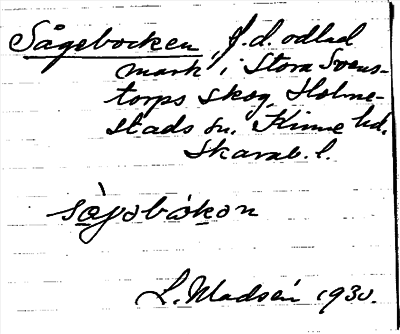 Sågebocken, f.d. odlad
mark i Stora Svens-
torps skog, Holme-
stads sn. Kinne hd.
Skarab. l.
L. Madsén 1930.